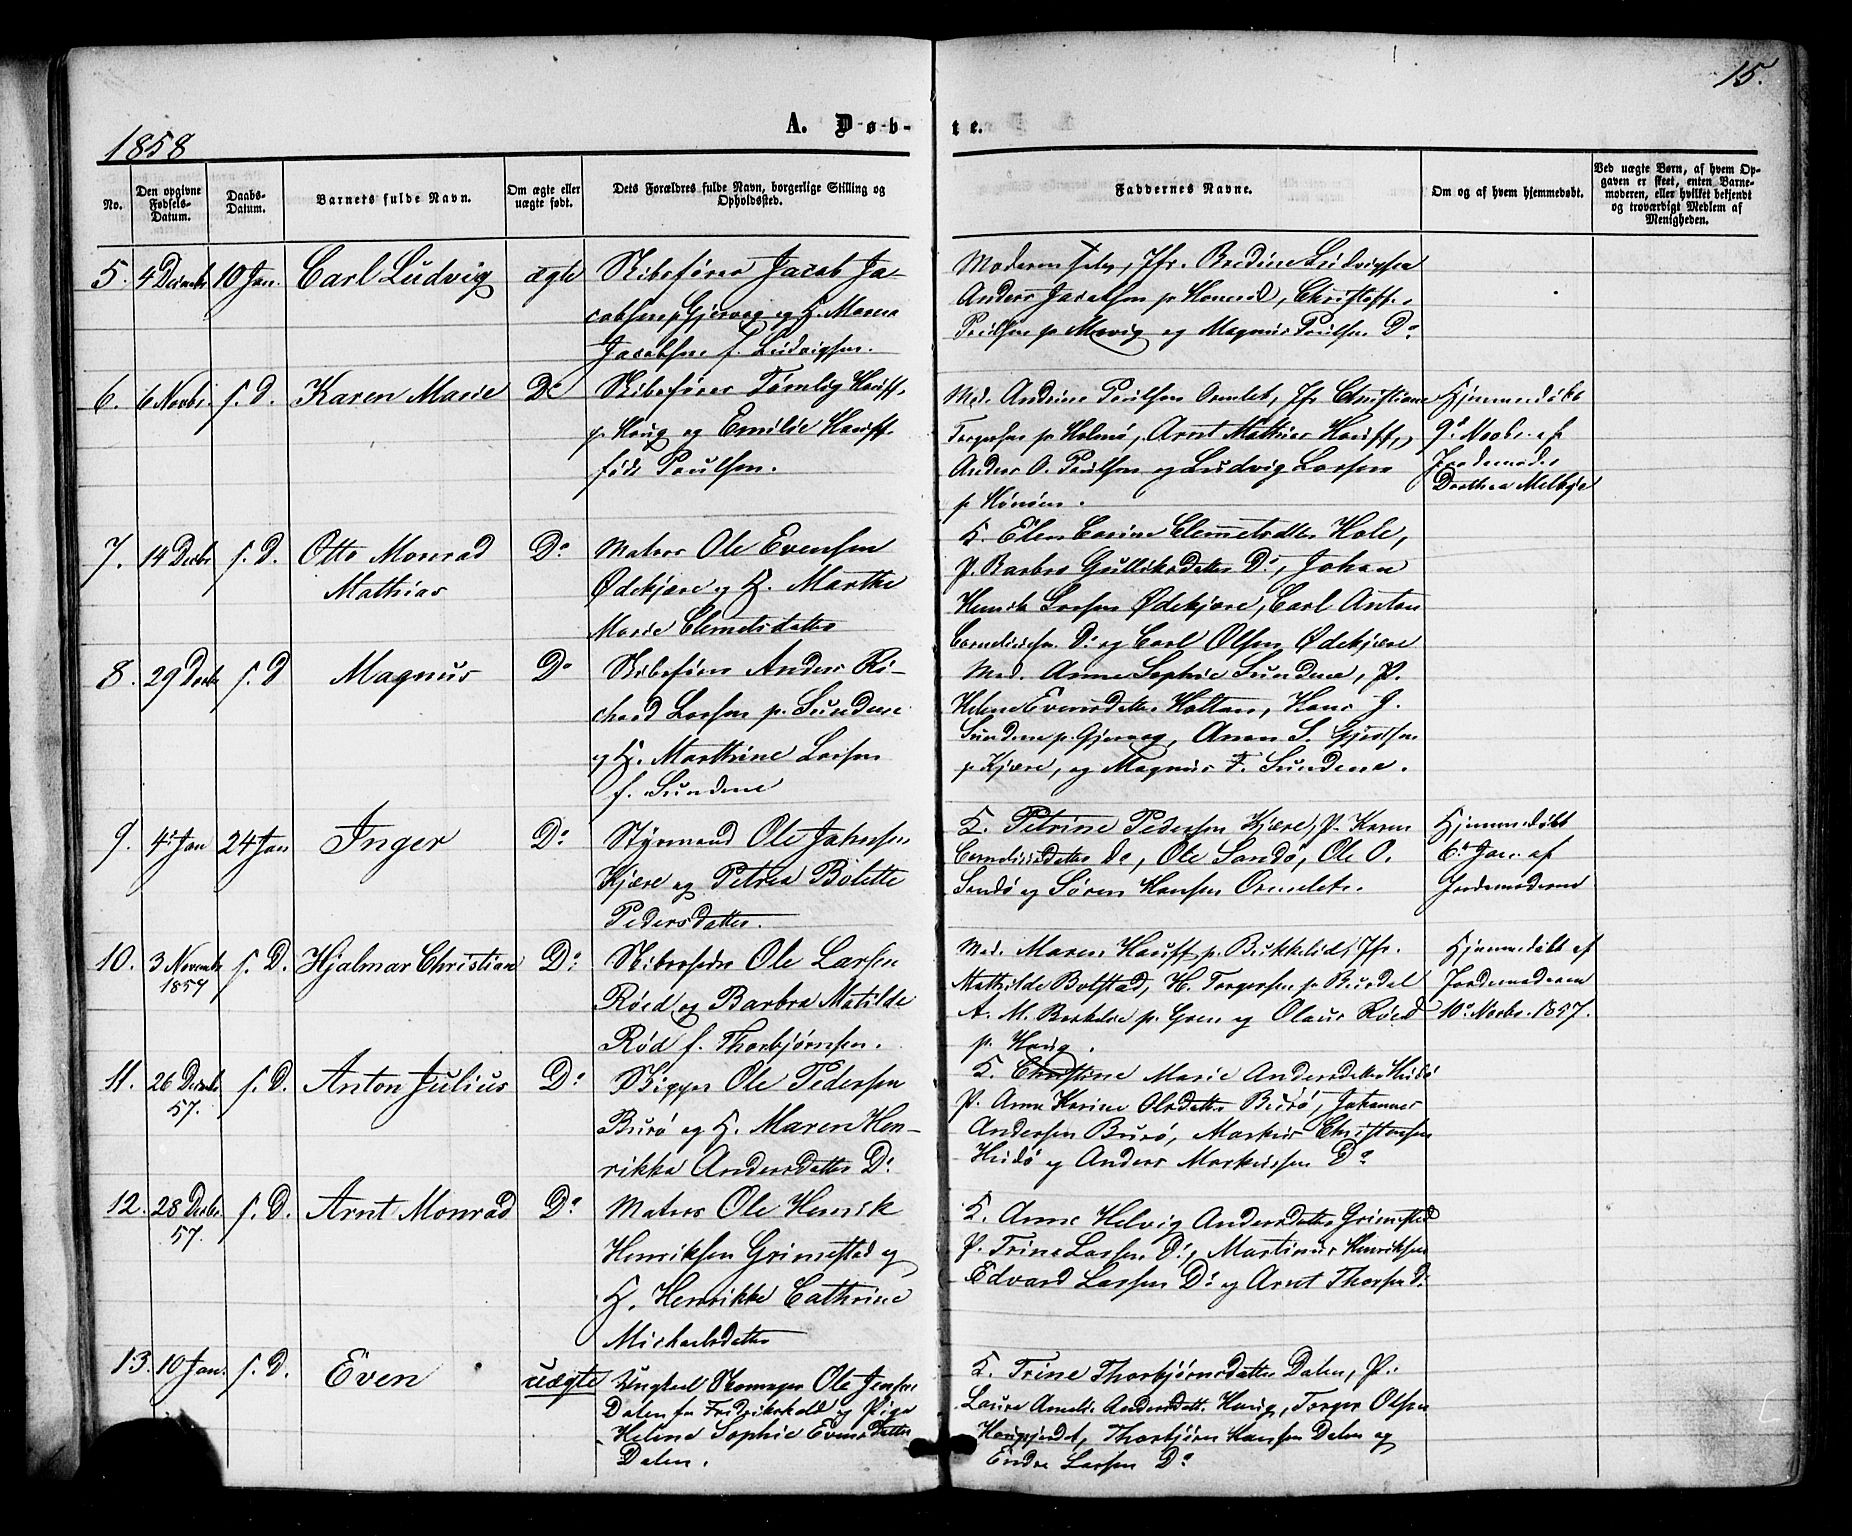 15.
A. Døb-
te.
1858
No.
Den opgivne
Fødsels-
Datum.
Daabs-
Datum.
Barnets fulde Navn.
Om ægte eller
uægte født.
Dets Forældres fulde Navn, borgerlige Stilling og
Opholdssted.
Faddernes Navne.
Om og af hvem hjemmedøbt.
Ved uægte Børn, af hvem Op-
gaven er skeet, enten Barne-
moderen, eller hvilket bekjendt
og troværdigt Medlem af
Menigheden.
5. 4 Decmbr 10 Jan. Carl Ludvig ægte
Skibsfører Jacob Ja-
cobsen p. Gjervaag og H. Maren
Jacobsen f. Ludvigsen.
Moderen selv, Jfr. Bredine Ludvigsen
Anders Jacobsen p. Christoffer
Poulsen p. og Magnus Poulsen Do
6. 6 Novbr s. D. Karen Marie Do
Skibsfører Tømlig Hauff
p. Haug og Emilie Hauff
født Poulsen.
Mad. Andrine Poulsen Ormelet, Jfr Christiane
Torgersen p. Holmø, Arnt Mathias Hauff,
Anders O. Poulsen og Ludvig Larsen
p.
Hjemmedøbt
9de Novbr. af
Jordemoder
Dorthea Melbye
7. 14 Decbr s. D. Otto Monrad
Mathias
Do
Matros Ole Evensen
Ødekjære og H. Marthe
Marie Clemetsdatter
K. Elen Carine Clemetsdatter Hole,
P. Barbro Gulliksdatter Do, Johan
Henrik Larsen Ødekjære, Carl Anton
Corneliussen Do og Carl Olsen Ødekjære
8. 29 Decbr s. D Magnus Do
Skibsfører Anders Ri-
chard Larsen p. Sundene
og H. Marthine Larsen
f. Sundene
Mad. Anne Sophie Sundene, P.
Helene Evensdatter Holtan, Hans J.
Sundene p. Gjervaag, Anon S. Gjertsen
p. Kjære, og Magnus F. Sundene.
9. 4de Jan 24 Jan Inger Do
Styrmand Ole Johnsen
Kjære og Petrea Bolette
Pedersdatter.
K. Petrine Pedersen Kjære, P. Karen
Corneliusdatter Do, Ole Sandø, Ole O.
Sandø og Søren Hansen Ormelet.
Hjemmedøbt
6te Jan. af
Jordemoderen
10. 3 Novembr
1857
s. D. Hjalmar Christian Do
Skibsreder Ole Larsen
Røed og Barbra Matilde
Rød f. Thorbjørnsen.
Mad. Maren Hauff p. Bukkelid, Jfr.
Mathilde Bolstad, H. Torgersen p. Buerdal
A. M. p. Green og Olaus Røed
p. Haug.
Hjemmedøbt af
Jordemoderen
10de Novbr. 1857.
11. 26 Decbr
57.
s. D. Anton Julius Do
Skipper Ole Pedersen
Burø og H. Maren Hen-
rikka Andersdatter Do
K. Christine Marie Andersdatter Hvidø
P. Anne Karine Olsdatter Burø, Johannes
Andersen Burø, Markus Christensen
Hvidø og Anders Markussen Do
12. 28 Decbr
57.
s. D. Arnt Monrad Do
Matros Ole Henrik
Henriksen Grimestad og
H. Henrikke Cathrine
Michaelsdatter
K. Anne Helvig Andersdatter Grimestad
P. Trine Larsen Do, Martinus Henriksen
Edvard Larsen Do og Arnt Thorsen Do
13. 10 Jan. s. D. Even uægte
Ungkarl Skomager Ole Jensen
Dalen fra Fredrikshald og Pige
Heline Sophie Evensdatter
Dalen.
K. Trine Thorbjørnsdatter Dalen, P.
Laura Amelie Andersdatt. Haug, Torger Olsen
Haugjordet, Thorbjørn Hansen Dalen og
Endre Larsen Do